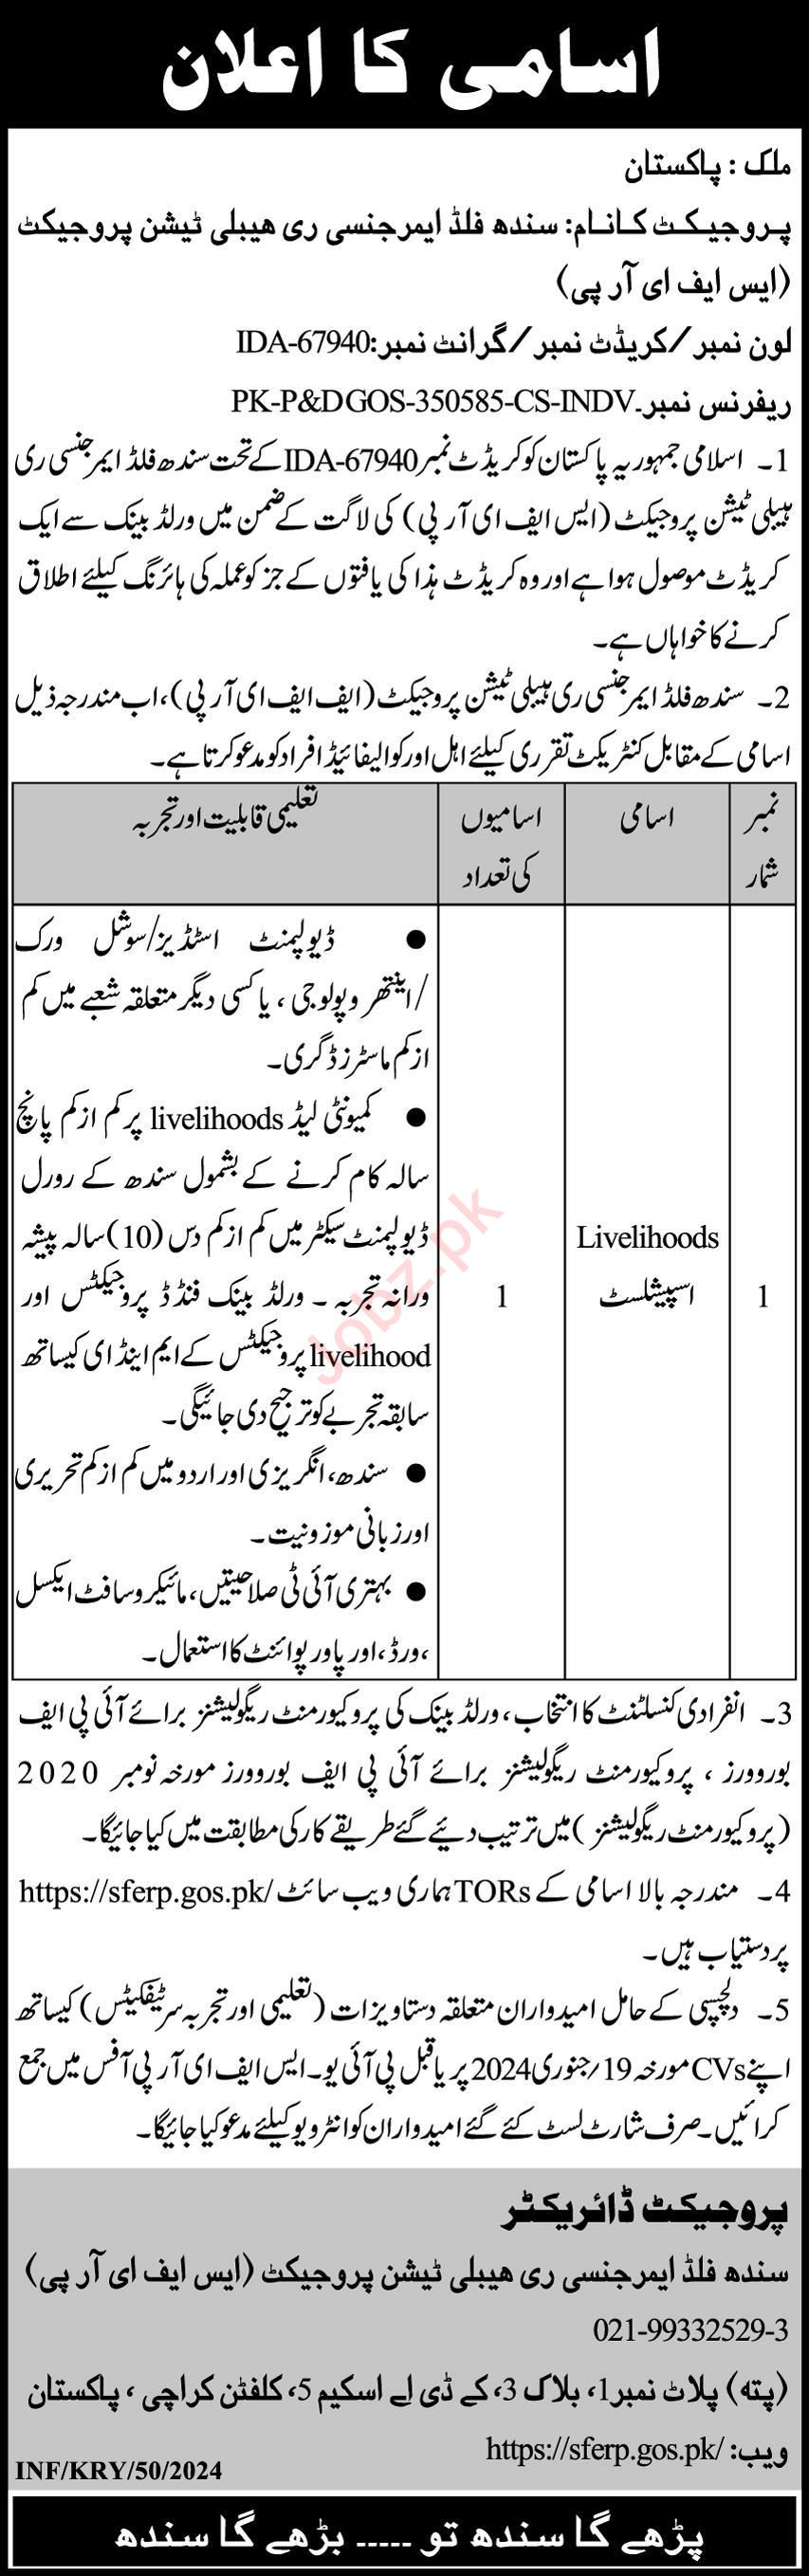 اسامی کا اعلان
ملک : پاکستان
پروجیکٹ کا نام: سندھ فلڈ ایمرجنسی ری ھیبلی ٹیشن پروجیکٹ
(ایس ایف ای آر پی)
لون نمبر/کریڈٹ نمبر/گرانٹ نمبر:IDA-67940
ریفرنس نمبر۔PK-P&DGOS-350585-CS-INDV
1۔ اسلامی جمہوریہ پاکستان کو کریڈٹ نمبر IDA-67940 کے تحت سندھ فلڈ ایمرجنسی ری
ہیبلی ٹیشن پروجیکٹ (ایس ایف ای آر پی) کی لاگت کے ضمن میں ورلڈ بینک سے ایک
کریڈٹ موصول ہوا ہے اور وہ کریڈٹ ہذا کی یافتوں کے جز کو عملہ کی ہائرنگ کیلئے اطلاق
کرنے کا خواہاں ہے۔
2۔ سندھ فلڈ ایمرجنسی ری ہیبلی ٹیشن پروجیکٹ (ایف ایف ای آر پی)، اب مندرجہ ذیل
اسامی کے مقابل کنٹریکٹ تقرری کیلئے اہل اور کوالیفائیڈ افراد کو مدعو کرتا ہے۔
نمبر شمار
اسامی
اسامیوں کی تعداد
تعلیمی قابلیت اور تجربہ
1
Livelihoods
اسپیشلسٹ
1
● ڈیولپمنٹ اسٹڈیز/سوشل ورک
/اینتھروپولوجی، یا کسی دیگر متعلقہ شعبے میں کم
از کم ماسٹرز ڈگری۔
● کمیونٹی لیڈ livelihoods پر کم از کم پانچ
سالہ کام کرنے کے بشمول سندھ کے رورل
ڈیولپمنٹ سیکٹر میں کم از کم دس (10) سالہ پیشہ
ورانہ تجربہ ۔ ورلڈ بینک فنڈڈ پروجیکٹس اور
livelihood پروجیکٹس کے ایم اینڈ ای کیساتھ
سابقہ تجربے کو ترجیح دی جائیگی۔
● سندھ، انگریزی اور اردو میں کم از کم تحریری
اور زبانی موزونیت۔
● بہتری آئی ٹی صلاحیتیں، مائیکروسافٹ ایکسل
،ورڈ، اور پاور پوائنٹ کا استعمال۔
3۔ انفرادی کنسلٹنٹ کا انتخاب، ورلڈ بینک کی پروکیورمنٹ ریگولیشنز برائے آئی پی ایف
بوروورز ، پروکیورمنٹ ریگولیشنز برائے آئی پی ایف بوروورز مورخہ نومبر 2020
(پروکیورمنٹ ریگولیشنز) میں ترتیب دیئے گئے طریقے کار کی مطابقت میں کیا جائیگا۔
4۔ مندرجہ بالا اسامی کے TORs ہماری ویب سائٹ https://sferp.gos.pk/
پر دستیاب ہیں۔
5۔ دلچسپی کے حامل امیدواران متعلقہ دستاویزات (تعلیمی اور تجربہ سرٹیفکیٹس) کیساتھ
اپنے CVs مورخہ 19/جنوری 2024 پر یا قبل پی آئی یو۔ ایس ایف ای آر پی آفس میں جمع
کرائیں۔ صرف شارٹ لسٹ کئے گئے امیدواران کو انٹرویو کیلئے مدعو کیا جائیگا۔
پروجیکٹ ڈائریکٹر
سندھ فلڈ ایمرجنسی ری ھیبلی ٹیشن پروجیکٹ (ایس ایف ای آر پی)
021-99332529-3
(پتہ) پلاٹ نمبر1، بلاک 3، کے ڈی اے اسکیم 5، کلفٹن کراچی ، پاکستان
ویب: https://sferp.gos.pk/
INF/KRY/50/2024
پڑھے گا سندھ تو ----- بڑھے گا سندھ
Jobz.pk